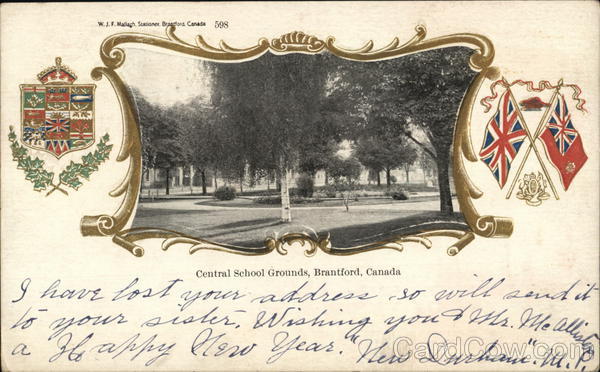 W. J. F. Mallagh, Stationer, Brantford, Canada 598
Central School Grounds, Brantford, Canada
I have lost your address so will send it
to your sister. Wishing you & Mr. McAllister
a Happy New Year. "New Durham". M. P.
CardCow.com